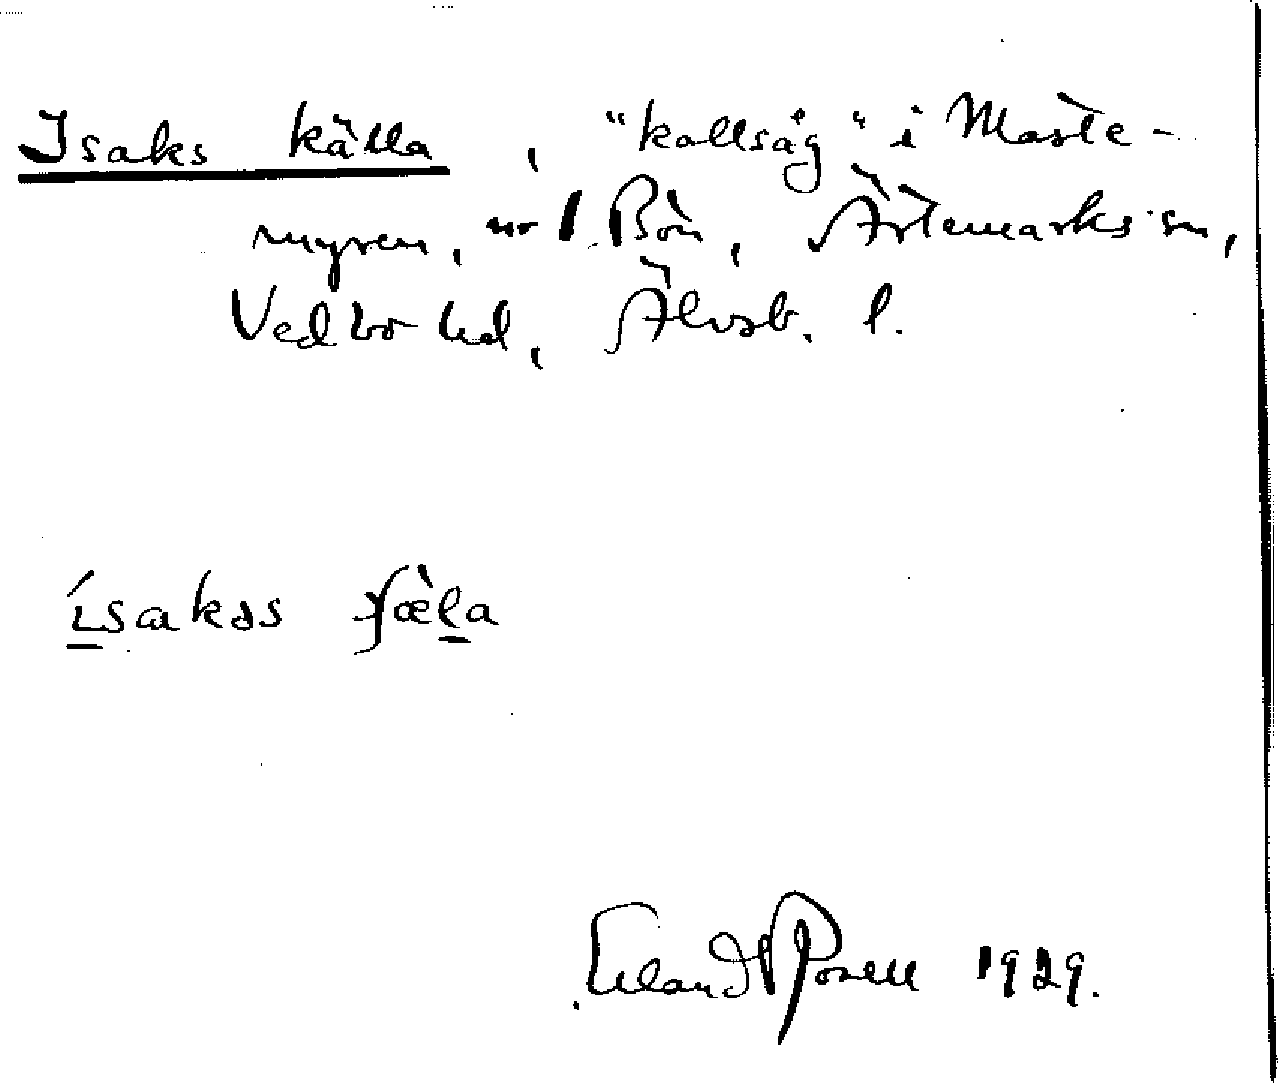 Isaks källa, "kallsåg" i Maste-
myren, nr 1 Bön, Ärtemarks sn,
Vedbo hd, Älvsb. l.
ísakəs ʃæ̀la
Erland Rosell 1929.